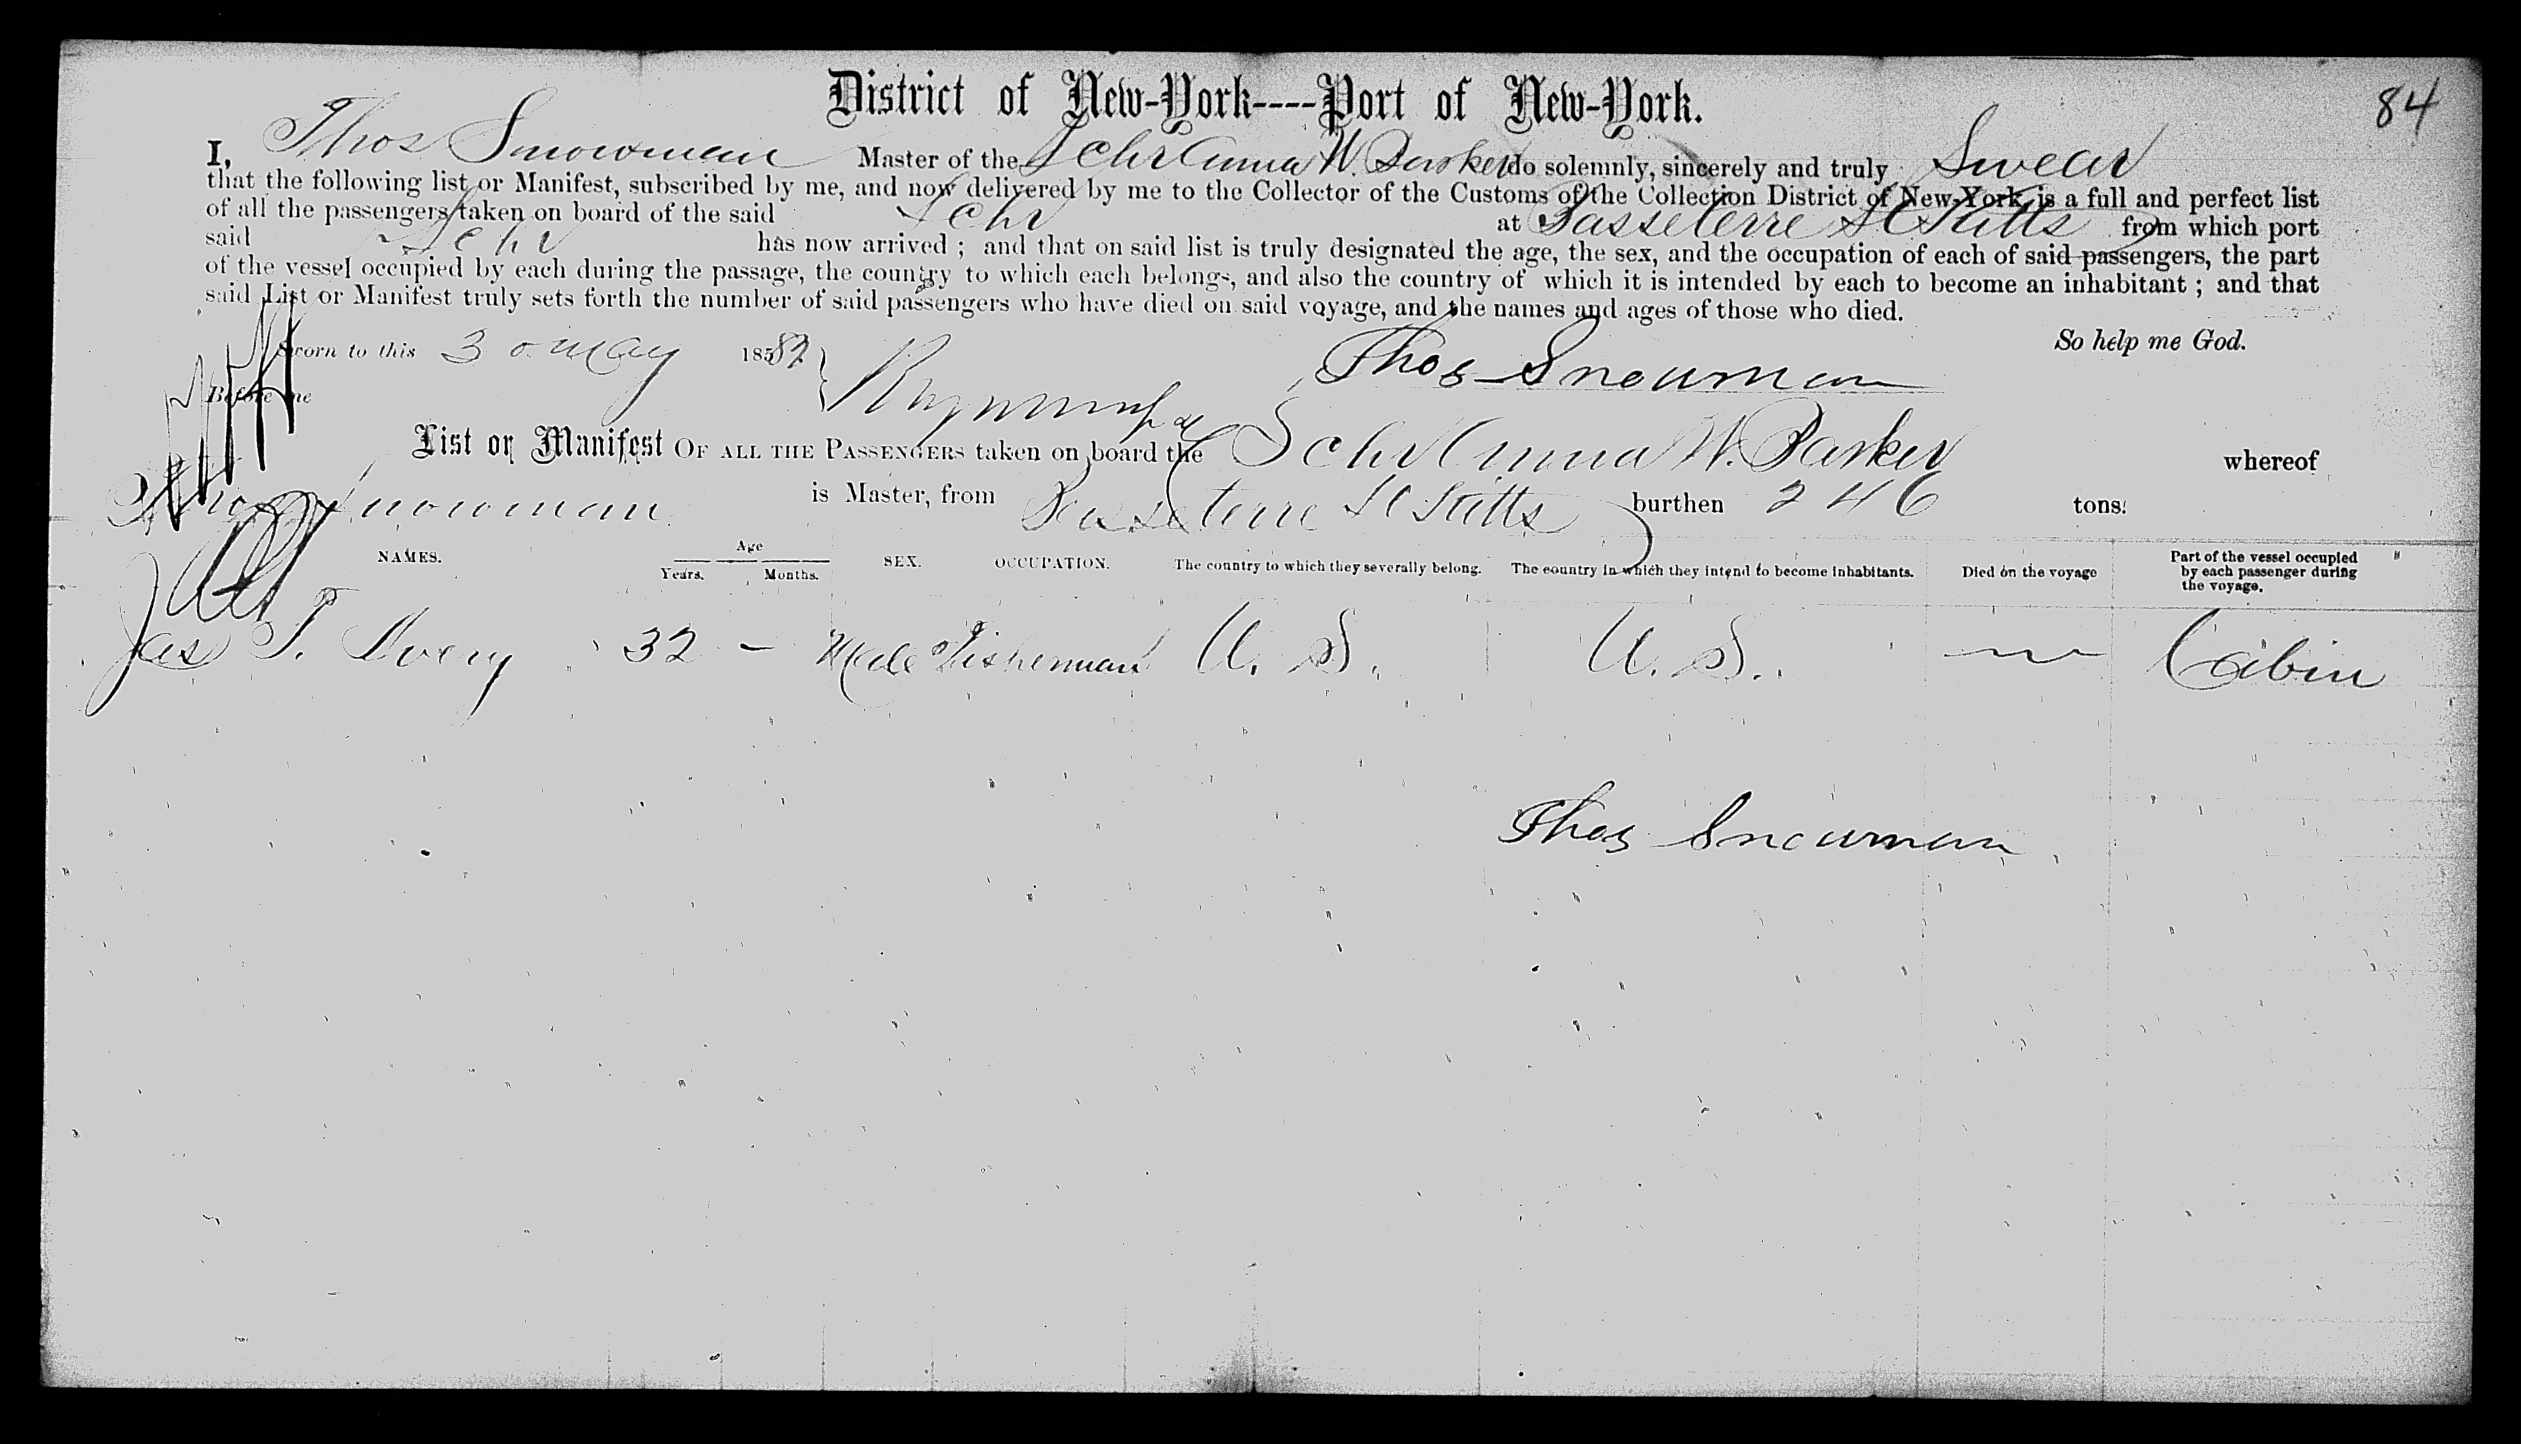 District of New-York----Port of New-York.
84
I, Thos Snowman Master of the Schr Anna W. Parker do solemnly, sincerely and truly Swear
that the following list or Manifest, subscribed by me, and now delivered by me to the Collector of the Customs of the Collection District of New-York, is a full and perfect list
of all the passengers taken on board of the said Schr at Basseterre St Kitts from which port
said Schr has now arrived ; and that on said list is truly designated the age, the sex, and the occupation of each of said passengers, the part
of the vessel occupied by each during the passage, the country to which each belongs, and also the country of which it is intended by each to become an inhabitant ; and that
said List or Manifest truly sets forth the number of said passengers who have died on said voyage, and the names and ages of those who died.
So help me God.
Sworn to this 30 May 18582
Thos Snowman
Before me
List or Manifest OF ALL THE PASSENGERS taken on board the Schr Anna W. Parker whereof
Thos Snowman is Master, from Basseterre St Kitts burthen 246 tons.
NAMES. Age Years. Months. SEX. OCCUPATION. The country to which they severally belong. The country in which they intend to become inhabitants. Died on the voyage Part of the vessel occupied by each passenger during the voyage.
Jas T. Avery 32 — Male Fisherman U. S. U. S. — Cabin
Thos Snowman